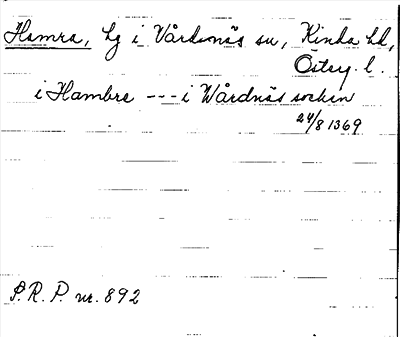 Hamra, hg i Vårdsnäs sn, Kinda hd,
Östeg. l.
i Hambre --- i Wårdnäs socken
24/8 1369
P. R. P. nr. 892